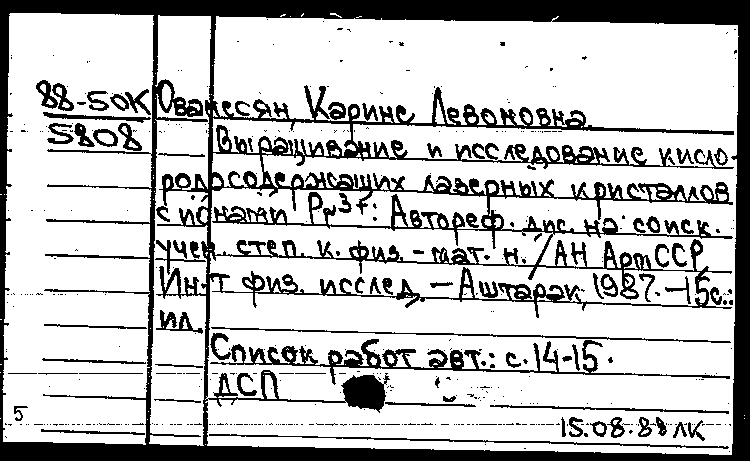 88-50К Ованесян, Карине Левоновна.
5808 Выращивание и исследование кисло-
родосодержащих лазерных кристаллов
с ионами Pr3+: Автореф. дис. на соиск.
учен. степ. к. физ.-мат. н. / АН АрмССР,
Ин-т физ. исслед. - Аштарак, 1987. - 15 с.:
ил.
Список работ авт.: с. 14-15.
ДСП
5
15.08.88 ЛК